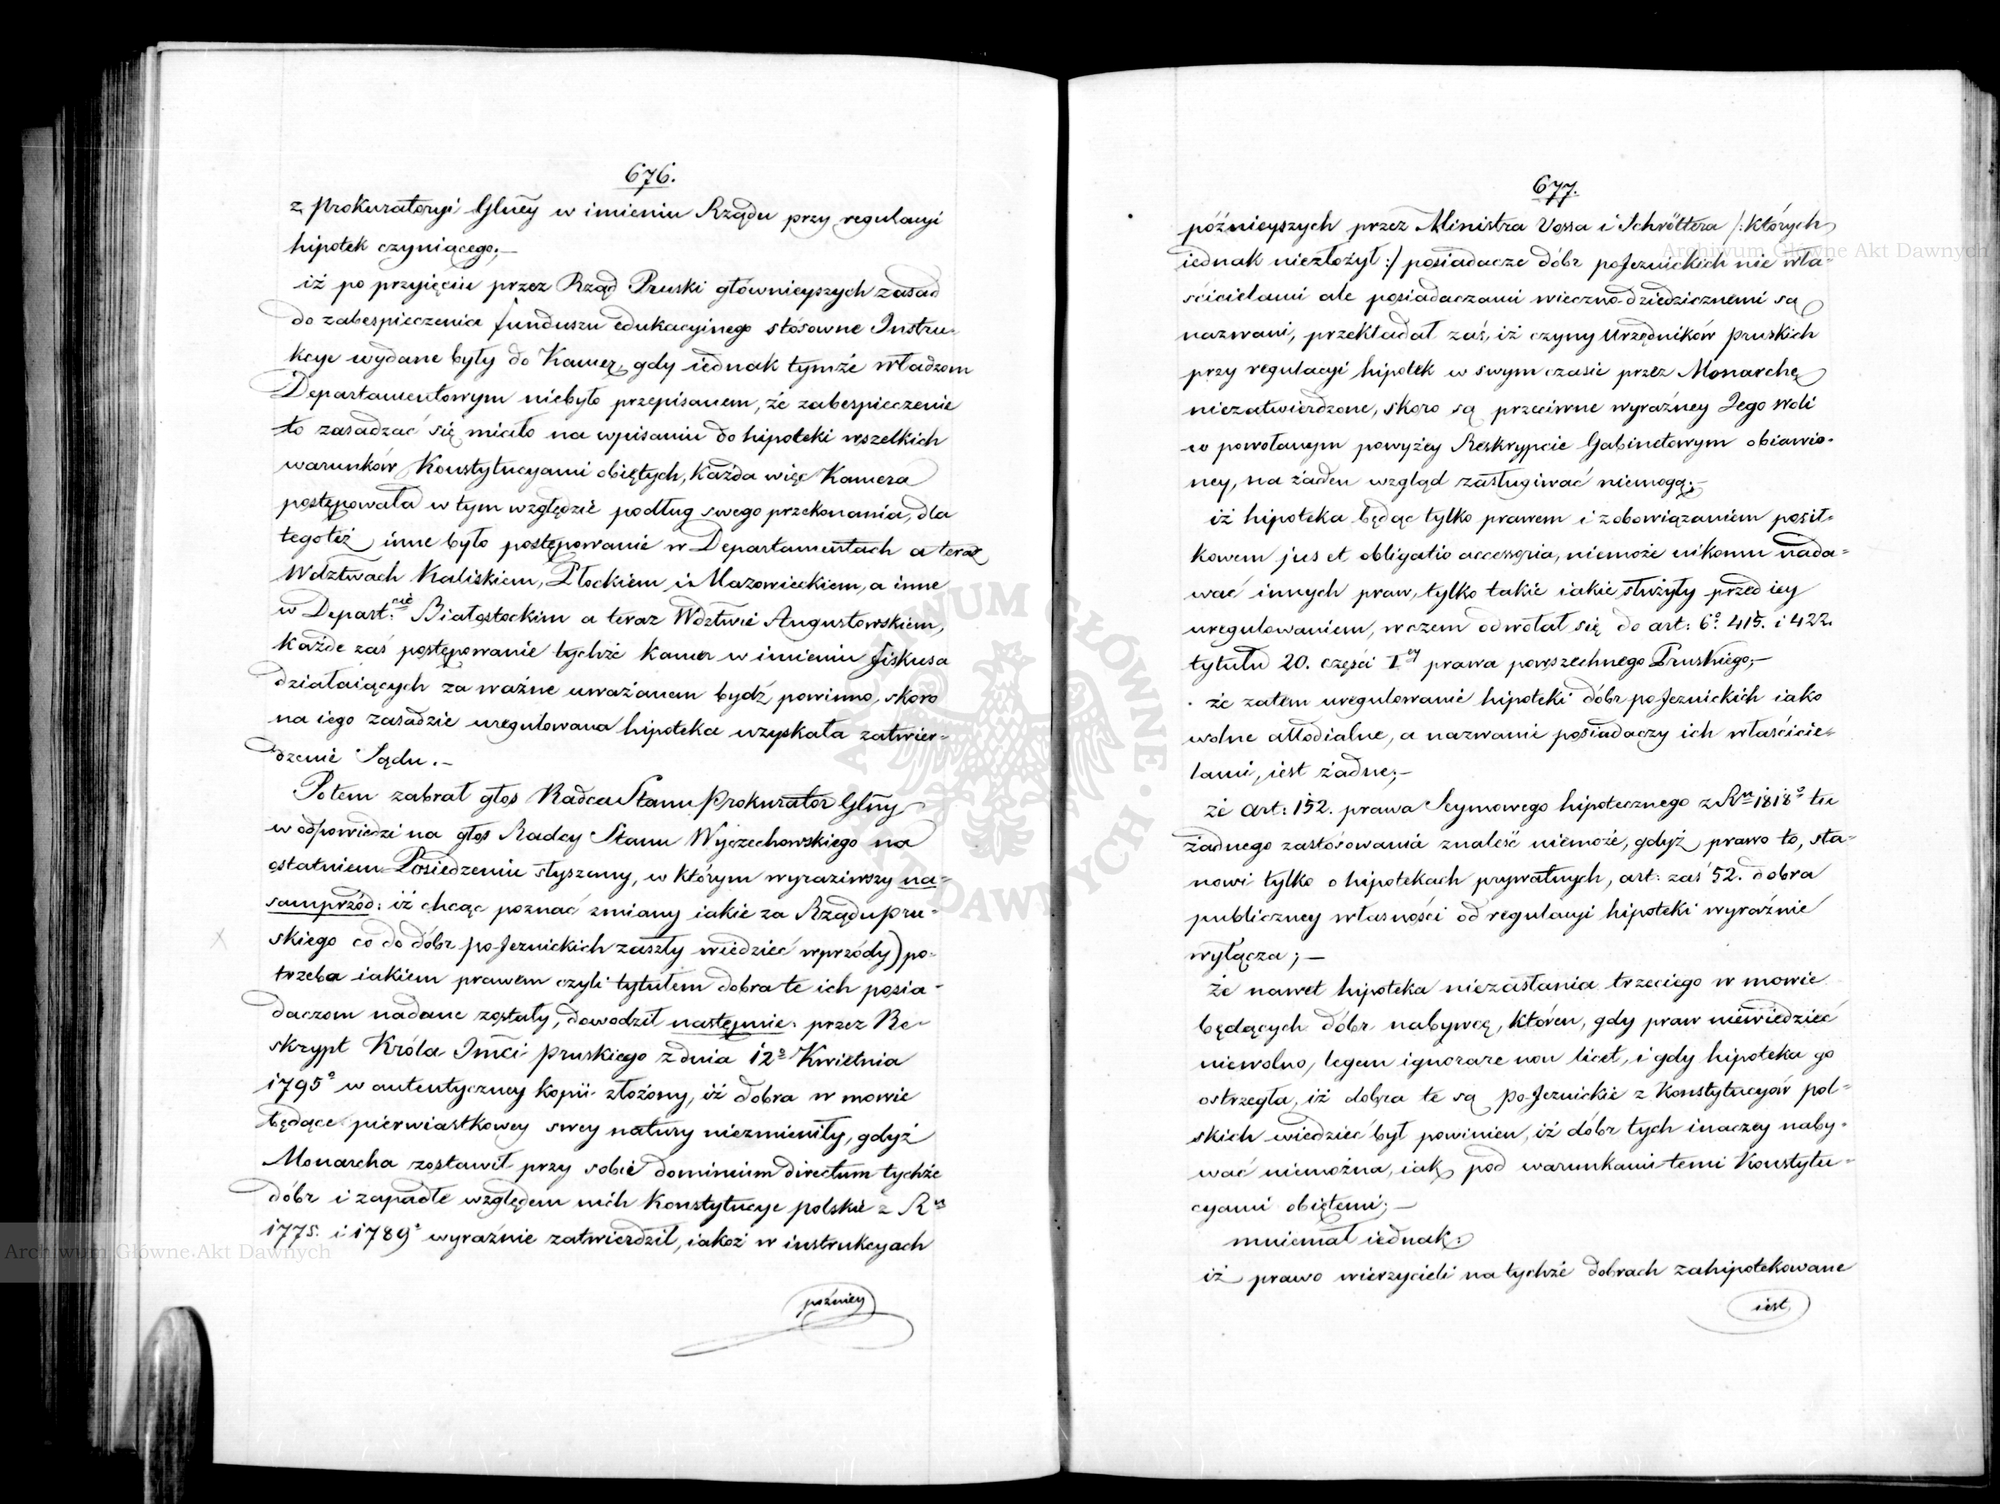 676.
z Prokuratoryi Głney w imieniu Rządu przy regulacyi
hipotek czyniącego;—
iż po przyięciu przez Rząd Pruski głównieyszych zasad
do zabespieczenia funduszu edukacyinego stósowne Instru-
kcye wydane były do Kamer, gdy iednak tymże władzom
Departamentowym niebyło przepisanem, że zabespieczenie
to zasadzać się miało na wpisaniu do hipoteki wszelkich
warunków Konstytucyami obiętych, Każda więc Kamera
postępowała w tym względzie podług swego przekonania, dla
tegoteż inne było postępowanie w Departamentach a teraz
Wdztwach Kaliskiem, Płockiem i Mazowieckiem, a inne
w Depart:cie Białostockim a teraz Wdztwie Augustowskiem,
Każde zaś postępowanie tychże Kamer w imieniu fiskusa
działaiących za ważne uważanem bydź powinno, skoro
na iego zasadzie uregulowana hipoteka uzyskała zatwier-
dzenie Sądu.—
Potem zabrał głos Radca Stanu Prokurator Głny
w odpowiedzi na głos Radcy Stanu Wyczechowskiego na
ostatniem Posiedzeniu słyszany, w którym wyraziwszy na-
samprzód: iż chcąc poznać zmiany iakie za Rządu pru-
skiego co do dóbr po-Jezuickich zaszły wiedzieć wprzódy po-
trzeba iakiem prawem czyli tytułem dobra te ich posia-
daczom nadane zostały, dowodził następnie: przez Re-
skrypt Króla Jmci pruskiego z dnia 12º Kwietnia
1795º w autentyczney kopii złożony, iż dobra w mowie
będące pierwiastkowey swey natury niezmieniły, gdyż
Monarcha zostawił przy sobie dominium directum tychże
dóbr i zapadłe względem nich Konstytucye polskie z Ru
1775. i 1789º wyraźnie zatwierdził, iakoż w instrukcyach
poźniey
677.
późnieyszych przez Ministra Vossa i Schröttera /: Których
iednak niezłożył :/ posiadacze dóbr poJezuickich nie wła-
ścicielami ale posiadaczami wieczno-dziedzicznemi są
nazwani, przekładał zaś, iż czyny Urzędników pruskich
przy regulacyi hipotek w swym czasie przez Monarchę
niezatwierdzone, skoro są przeciwne wyraźney Jego Woli
w powołanym powyżey Reskrypcie Gabinetowym obiawio-
ney, na żaden wzgląd zasługiwać niemogą;—
iż hipoteka będąc tylko prawem i zobowiązaniem posił-
kowem jus et obligatio accessoria, niemoże nikomu nada-
wać innych praw, tylko takie iakie służyły przed iey
uregulowaniem, w czem odwołał się do art: 6º 415. i 422.
tytułu 20. części Iey prawa powszechnego Pruskiego;—
że zatem uregulowanie hipoteki dóbr po-Jezuickich iako
wolne allodialne, a nazwanie posiadaczy ich właścicie-
lami, iest żadne;—
że art: 152. prawa Seymowego hipotecznego z Ru 1818º tu
żadnego zastósowania znaleść niemoże, gdyż prawo to, sta-
nowi tylko o hipotekach prywatnych, art: zaś 52. dobra
publiczney własności od regulacyi hipoteki wyraźnie
wyłącza;—
że nawet hipoteka niezasłania trzeciego w mowie
będących dóbr nabywcę, któren, gdy praw niewiedzieć
niewolno, legem ignorare non licet, i gdy hipoteka go
ostrzegła, iż dobra te są po-Jezuickie z Konstytucyów pol-
skich wiedzieć był powinien, iż dóbr tych inaczey naby-
wać niemożna, iak pod warunkami temi Konstytu-
cyami obiętemi;—
mniemał iednak:
iż prawo wierzycieli na tychże dobrach zahipotekowane
iest
Archiwum Główne Akt Dawnych
Archiwum Główne Akt Dawnych
ARCHIWUM GŁÓWNE AKT DAWNYCH